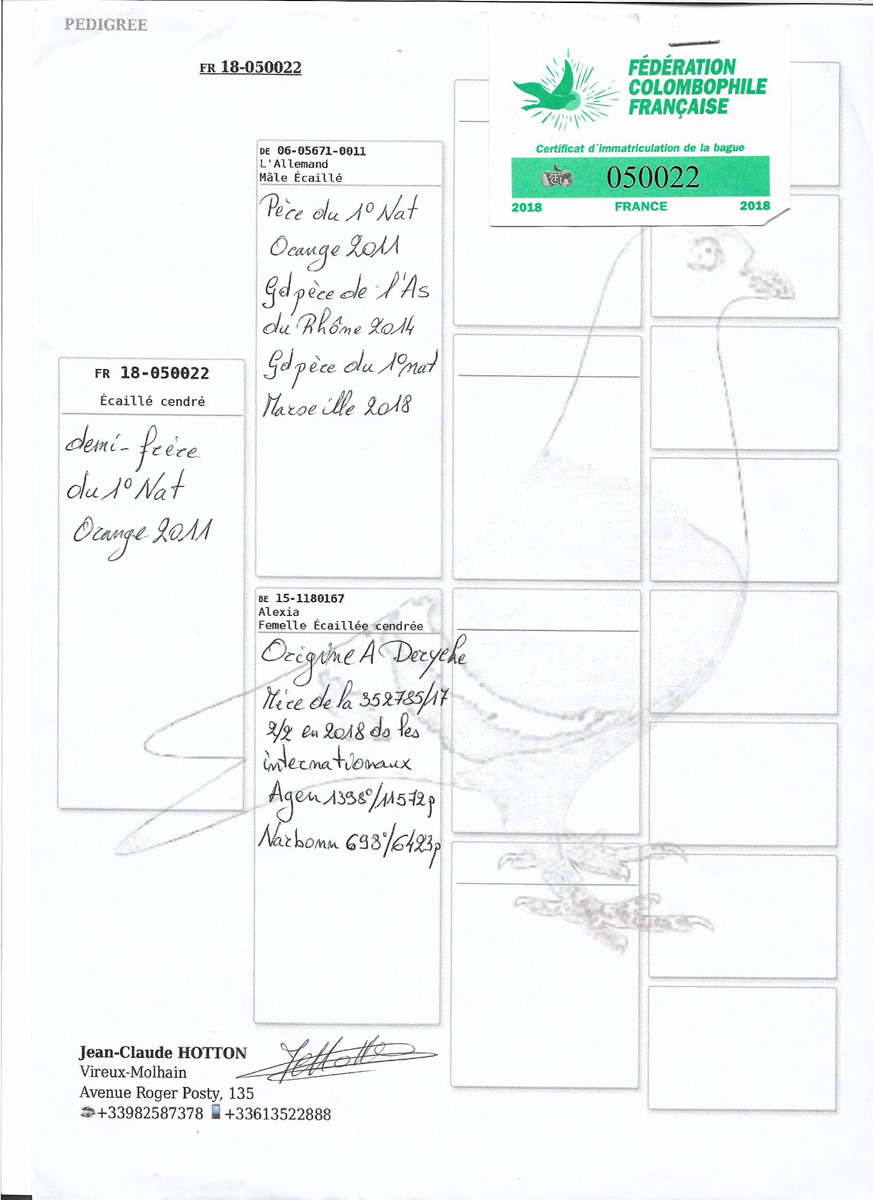 PEDIGREE
FR 18-050022
FÉDÉRATION
COLOMBOPHILE
FRANÇAISE
Certificat d'immatriculation de la bague
050022
2018 FRANCE 2018
DE 06-05671-0011
L'Allemand
Mâle Écaillé
Père du 1° Nat
Orange 2011
Gd père de l'As
du Rhône 2014
Gd père du 1° nat
Marseille 2018
FR 18-050022
Écaillé cendré
demi-frère
du 1° Nat
Orange 2011
BE 15-1180167
Alexia
Femelle Écaillée cendrée
Origine A Deryche
Mère de la 352785/17
2/2 en 2018 ds les
internationaux
Agen 1398°/11572p
Narbonn 698°/6423p
Jean-Claude HOTTON
Vireux-Molhain
Avenue Roger Posty, 135
+33982587378 +33613522888